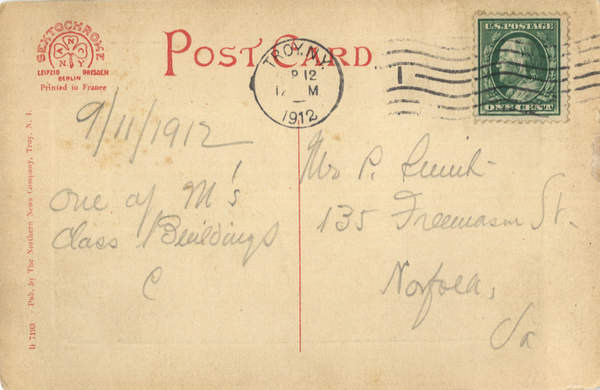 SEXTOCHROME
N
N Y
LEIPZIG DRESDEN
BERLIN
Printed in France
POST CARD
TROY, N.Y.
SEP 12
12 M
1912
1
U.S. POSTAGE
ONE CENT
9/11/1912
One of M's
Class Buildings
C
Mr P.
135 Freemason St.
Norfolk,
Va
D 7193 Pub. by The Northern News Company, Troy, N. Y.